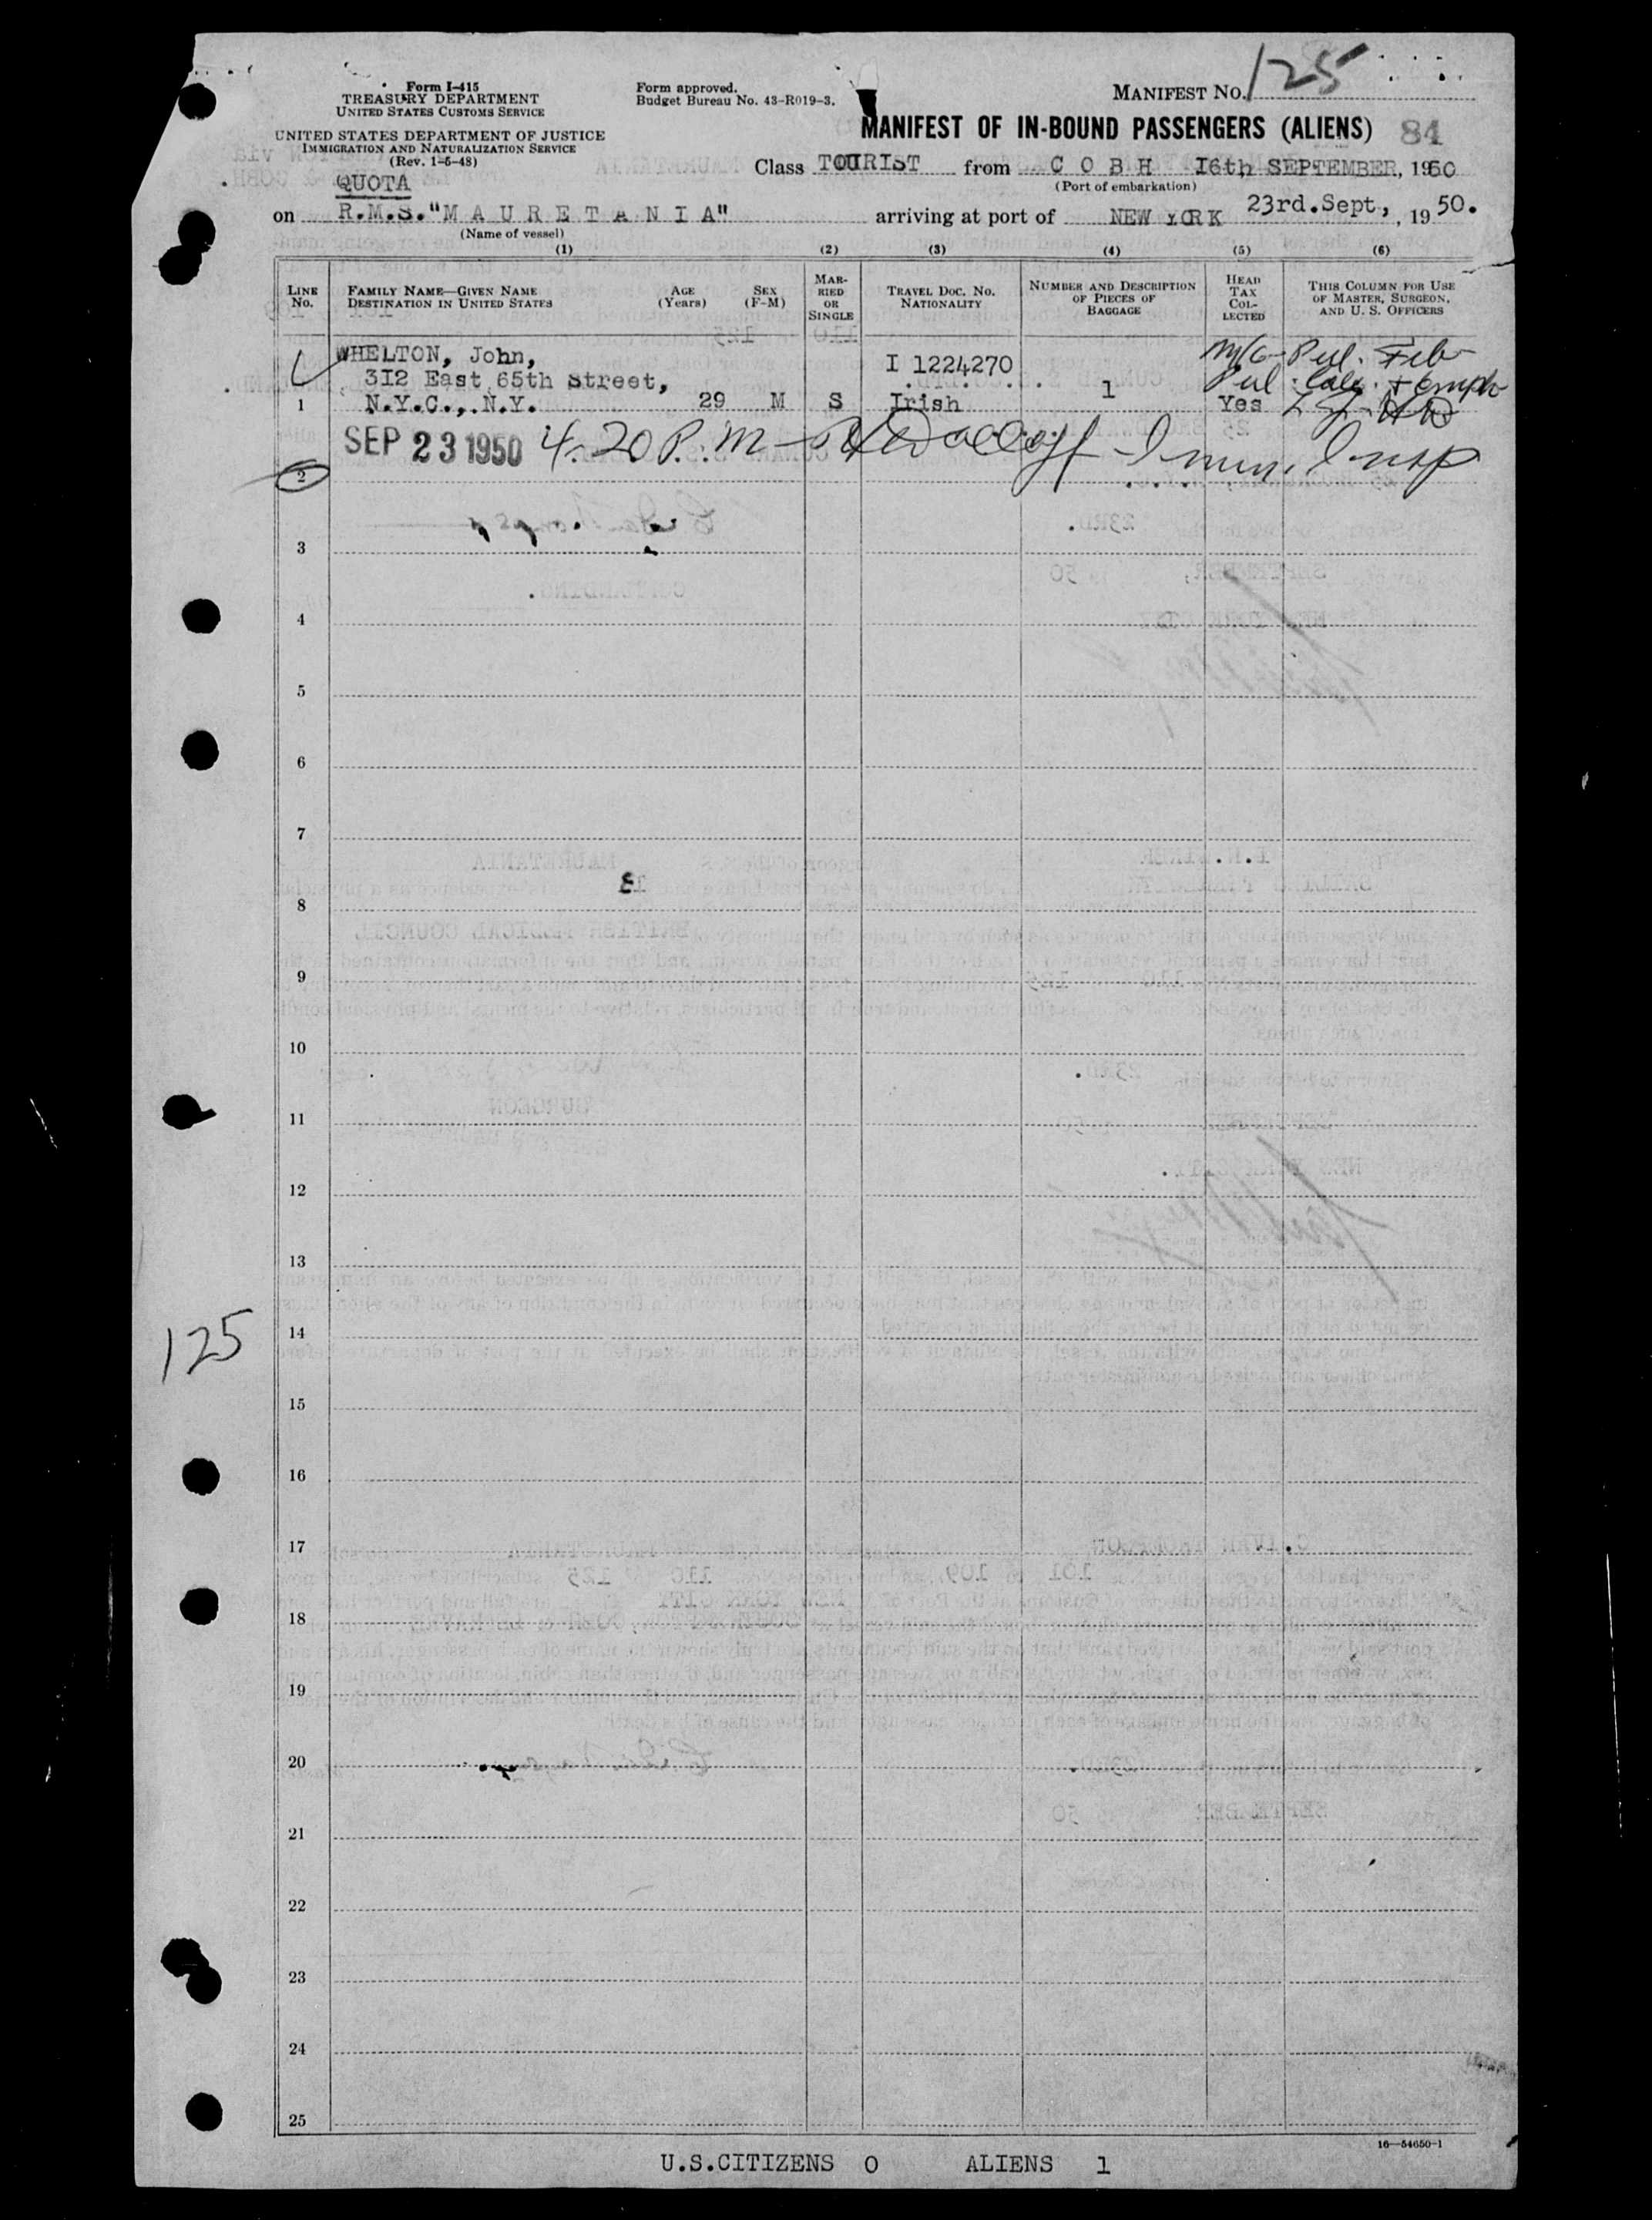 Form I-415
TREASURY DEPARTMENT
UNITED STATES CUSTOMS SERVICE
UNITED STATES DEPARTMENT OF JUSTICE
IMMIGRATION AND NATURALIZATION SERVICE
(Rev. 1-6-48)
Form approved.
Budget Bureau No. 43-R019-3.
MANIFEST NO. 125
MANIFEST OF IN-BOUND PASSENGERS (ALIENS) 84
Class TOURIST from C O B H 16th SEPTEMBER, 1950
(Port of embarkation)
QUOTA
on R.M.S. "M A U R E T A N I A" arriving at port of NEW YORK 23rd.Sept, , 19 50.
(Name of vessel)
(1) (2) (3) (4) (5) (6)
LINE NO. FAMILY NAME—GIVEN NAME DESTINATION IN UNITED STATES AGE (Years) SEX (F-M) MARRIED OR SINGLE TRAVEL DOC. NO. NATIONALITY NUMBER AND DESCRIPTION OF PIECES OF BAGGAGE HEAD TAX COLLECTED THIS COLUMN FOR USE OF MASTER, SURGEON, AND U. S. OFFICERS
WHELTON, John, I 1224270
312 East 65th Street, 1
1 N.Y.C., N.Y. 29 M S Irish Yes
SEP 23 1950 4.20 P.M Imm. Insp
2
3
4
5
6
7
8
9
10
11
12
13
125
14
15
16
17
18
19
20
21
22
23
24
25
16—54650-1
U.S.CITIZENS 0 ALIENS 1